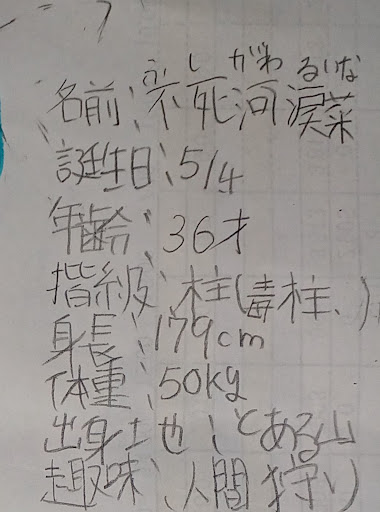 ふしがわるいな
名前:不死河涙菜
誕生日:5/4
年齢:36才
階級:柱(毒柱、)
身長:179cm
体重:50kg
出身地:とある山
趣味:人間狩り